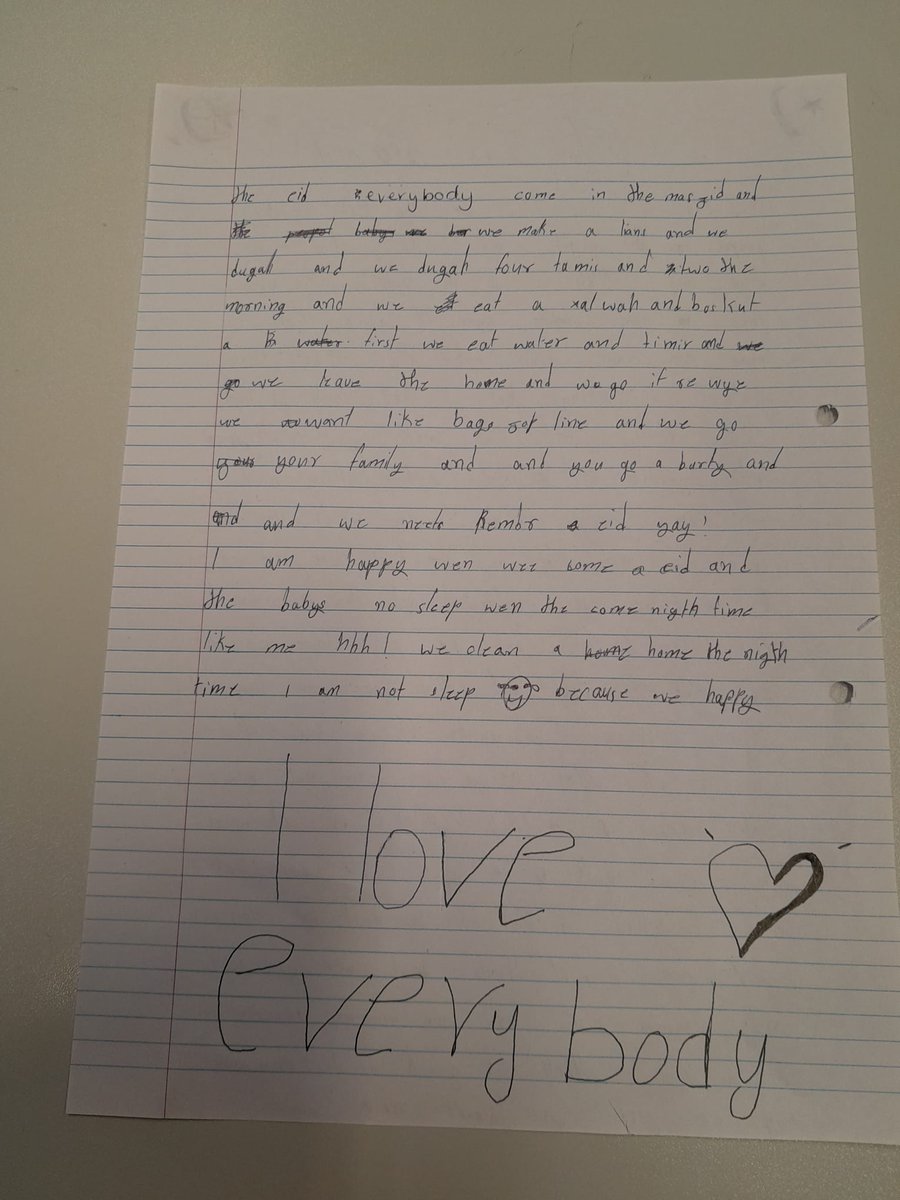 the eid everybody come in the masgid and
we make a lians and we
dugah and we dugah four tamis and two the
morning and we eat a xalwah and boskut
a first we eat water and timir and
go we leave the home and we go it se wye
we want like bags got line and we go
your family and and you go a barty and
and we neets Rembr a eid yay!
I am happy wen wee come a eid and
the babys no sleep wen the come nigth time
like me hhh! we clean a home the nigth
time i am not sleep because we happy
I love
everybody